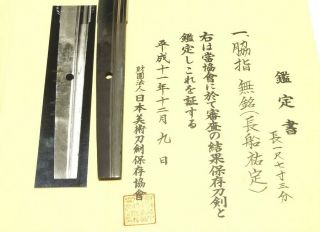 鑑定書
一、脇指 無銘(長船祐定)
長一尺七寸三分
右は當協會に於て審査の結果保存刀剣と
鑑定しこれを証する
平成十一年十二月九日
財團法人日本美術刀剣保存協會